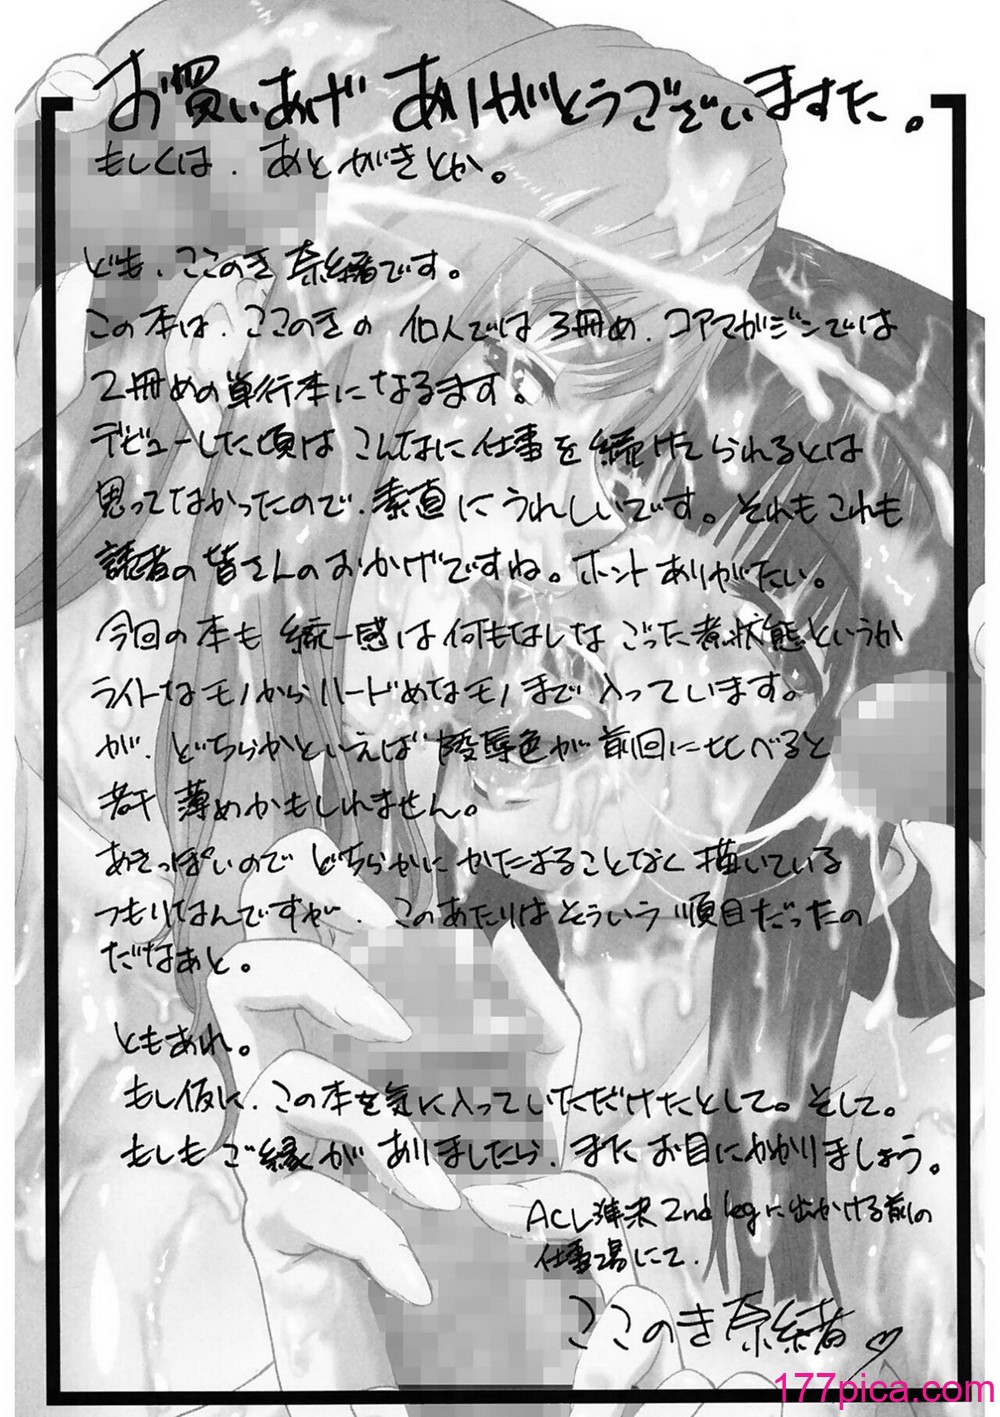 お買いあげ ありがとうございますた。
もしくは、あとがきとか。
ども、ここのき奈緒です。
この本は、ここのきの個人では3冊め、コアマガジンでは
2冊めの単行本になるます。
デビューした頃はこんなに仕事を続けてられるとは
思ってなかったので、素直にうれしいです。それもこれも
読者の皆さんのおかげですね。ホントありがたい。
今回の本も統一感は何もなしなごった煮状態というか
ライトなモノからハードめなモノまで入っています。
が、どちらかといえば陵辱色が前回に比べると
若干薄めかもしれません。
あきっぽいのでどちらかにかたまることなく描いている
つもりなんですが、このあたりはそういう順目だったの
だなあと。
ともあれ。
もし仮に、この本を気に入っていただけたとして。そして。
もしもご縁がありましたら、またお目にかかりましょう。
ACL準決2nd legに出かける前の
仕事場にて、
ここのき奈緒♡
177pica.com